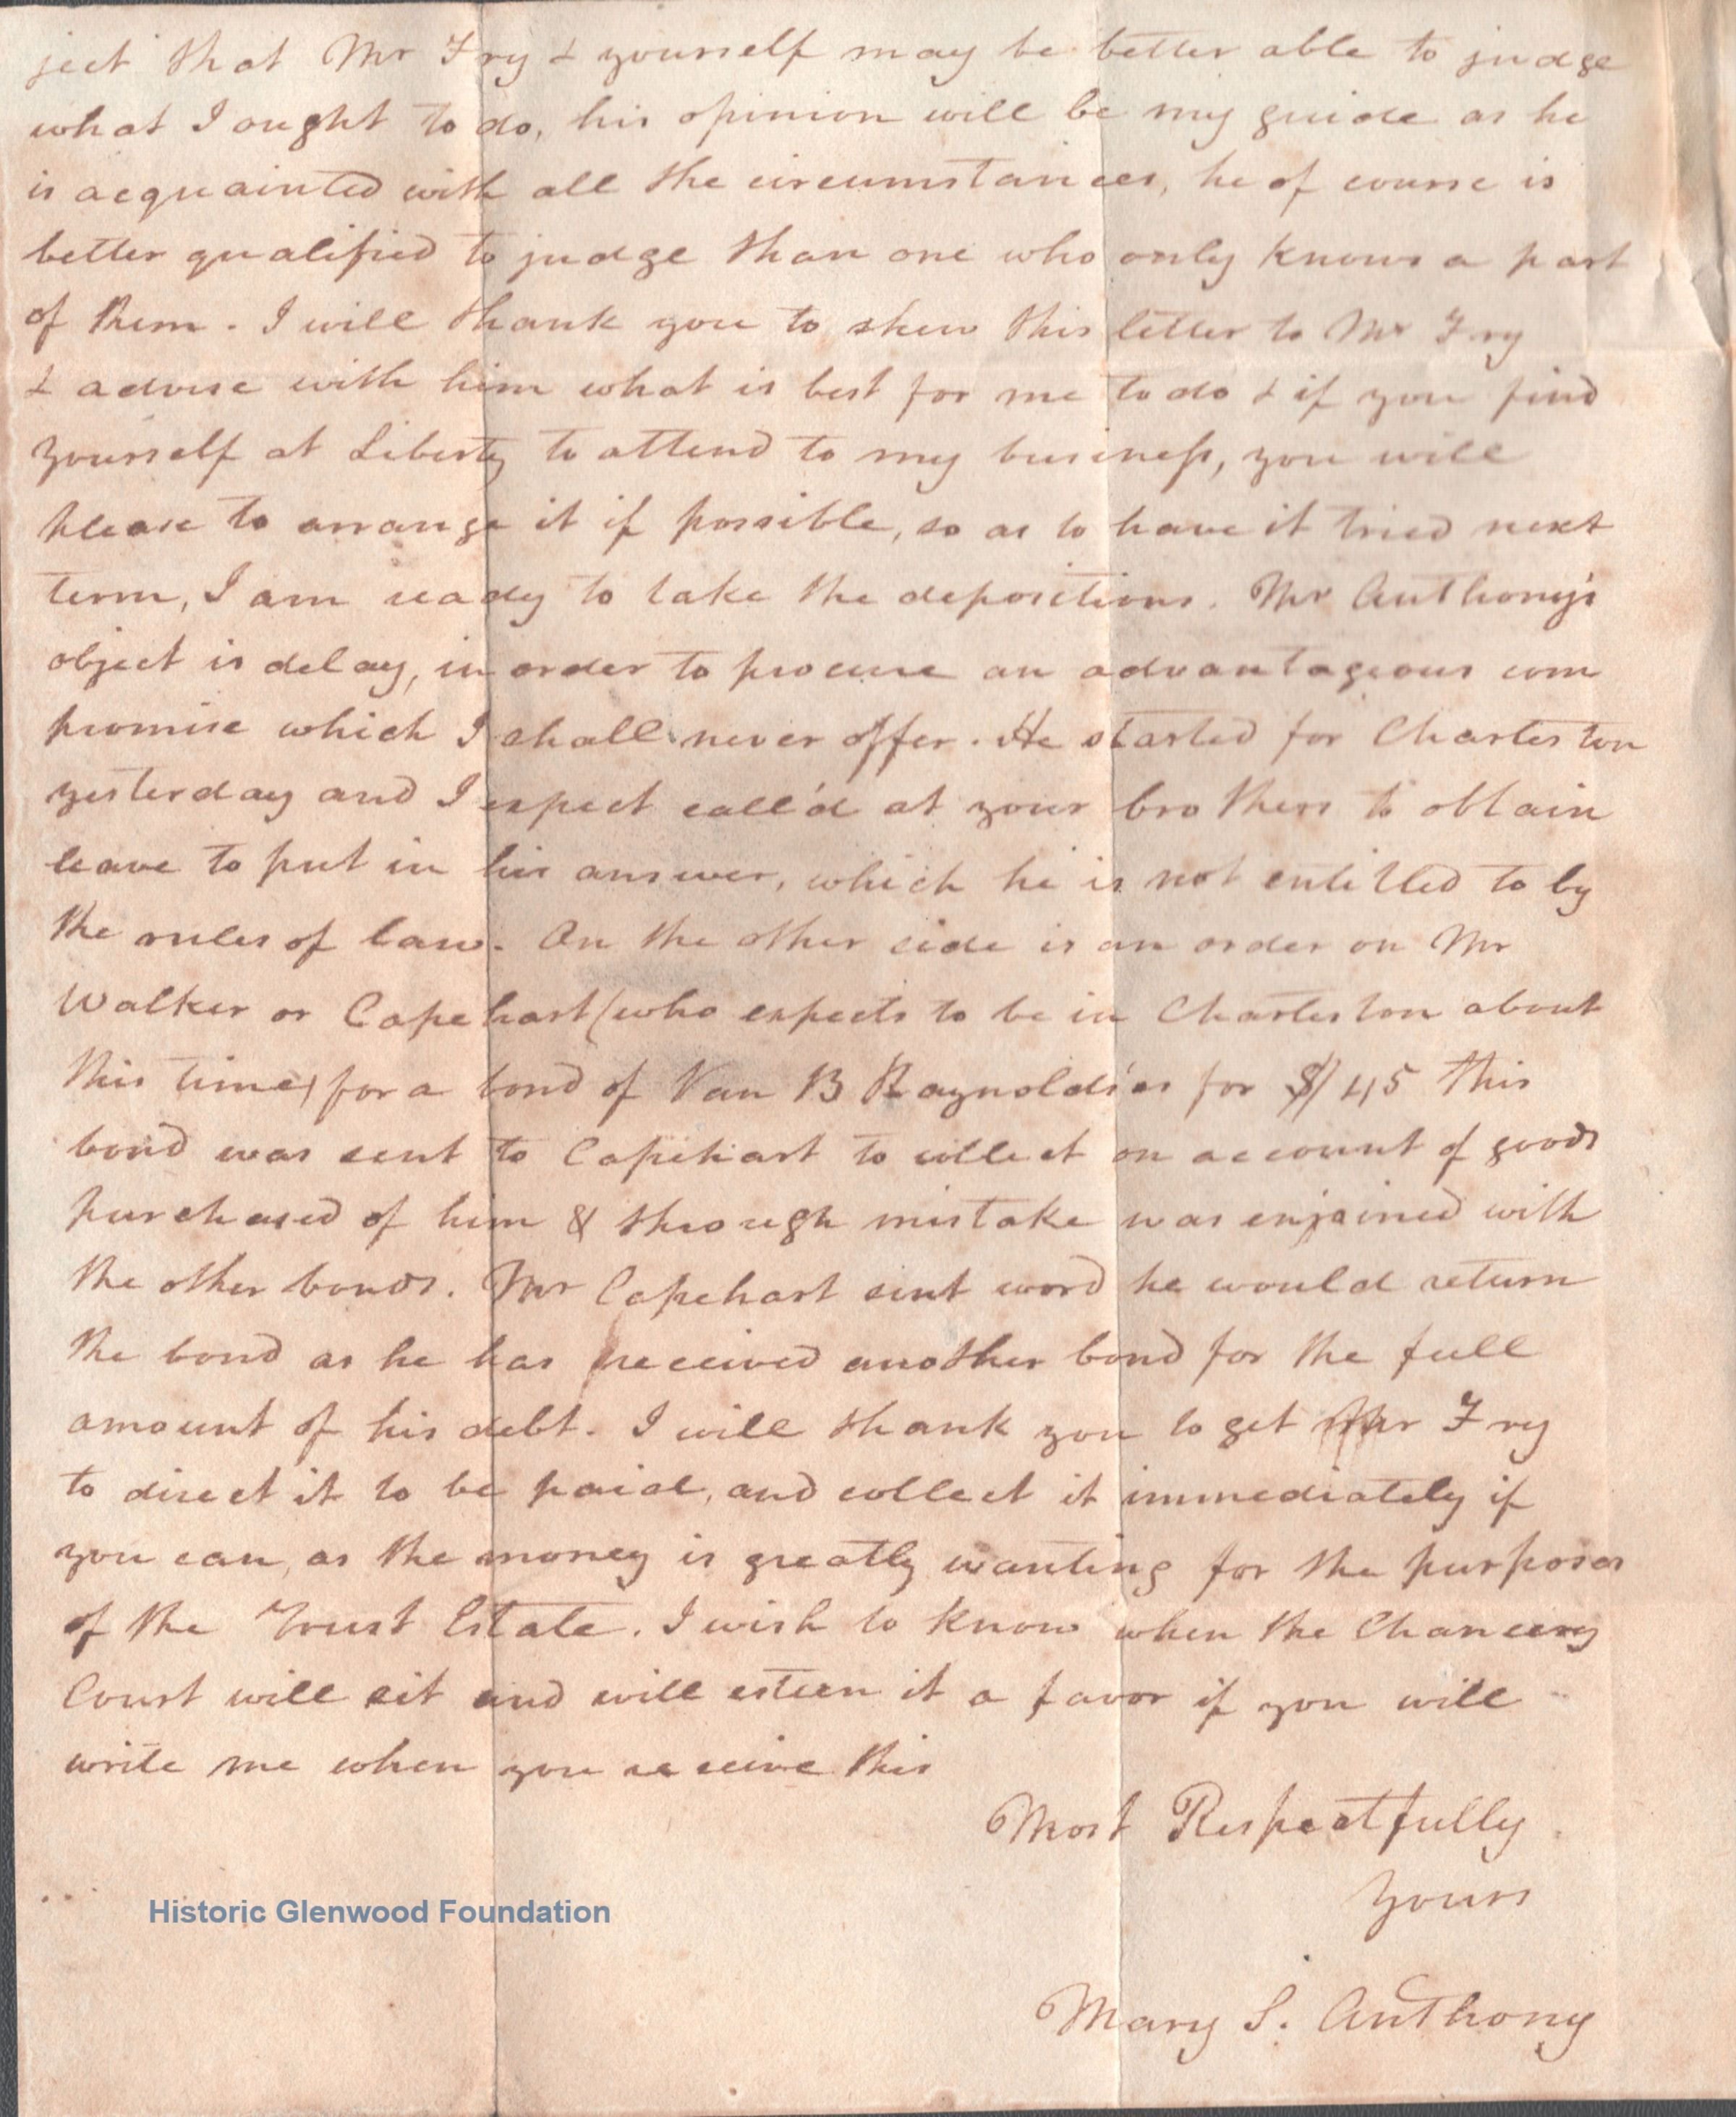 ject that Mr Fry & yourself may be better able to judge
what I ought to do, his opinion will be my guide as he
is acquainted with all the circumstances, he of course is
better qualified to judge than one who only knows a part
of them. I will thank you to shew this letter to Mr Fry
& advise with him what is best for me to do & if you find
yourself at Liberty to attend to my business, you will
please to arrange it if possible, so as to have it tried next
term, I am ready to take the depositions. Mr Anthony's
object is delay, in order to procure an advantageous com
promise which I shall never offer. He started for Charleston
yesterday and I expect call'd at your brothers to obtain
leave to put in his answer, which he is not entitled to by
the rules of law. On the other side is an order on Mr
Walker or Capehart (who expects to be in Charleston about
this time) for a bond of Van B Raynolds'es for $145 This
bond was sent to Capehart to collect on account of goods
purchased of him & through mistake was enjoined with
the other bonds. Mr Capehart sent word he would return
the bond as he has received another bond for the full
amount of his debt. I will thank you to get Mr Fry
to direct it to be paid, and collect it immediately if
you can, as the money is greatly wanting for the purposes
of the Trust Estate. I wish to know when the Chancery
Court will sit and will esteem it a favor if you will
write me when you receive this
Most Respectfully
Yours
Mary S. Anthony
Historic Glenwood Foundation